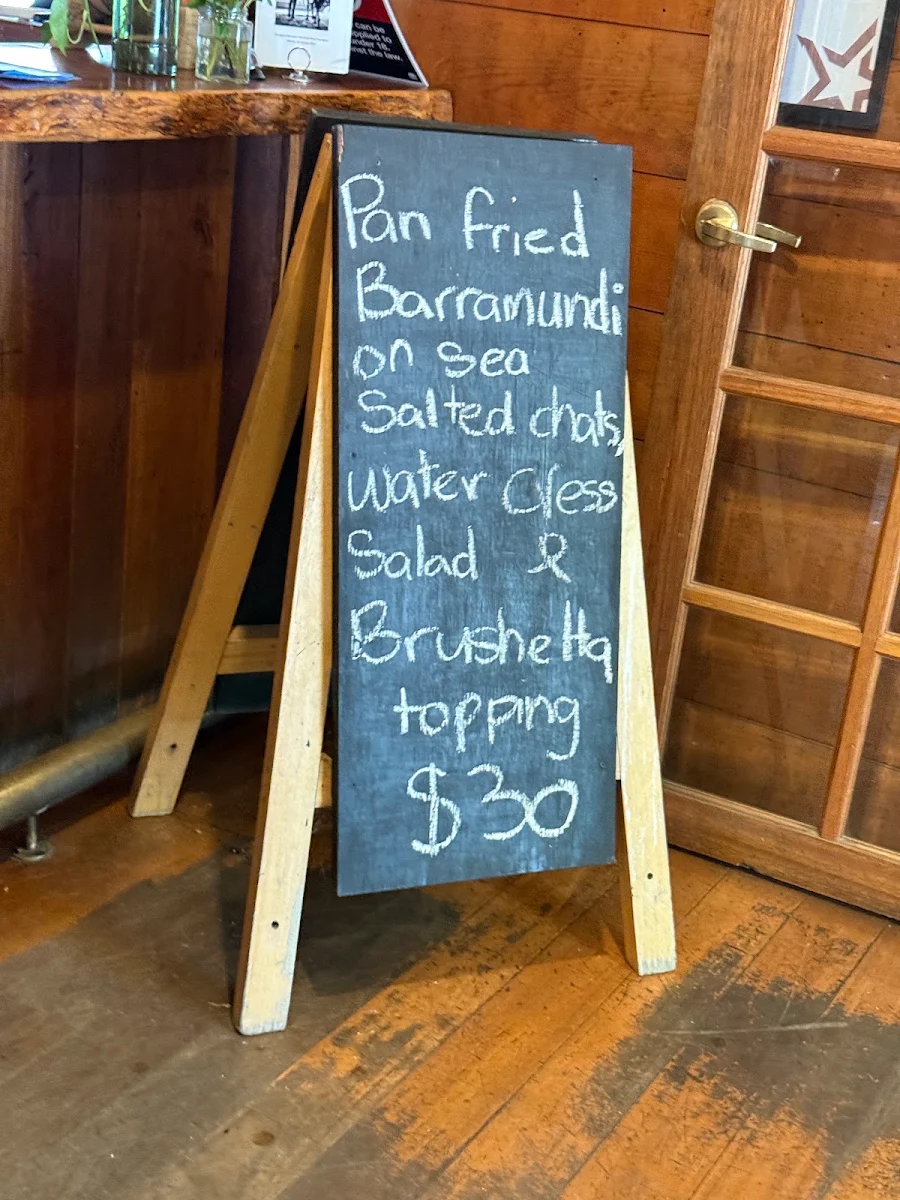 can be
pplied to
under 18.
inst the law.
Pan fried
Barramundi
on sea
Salted chats,
water Cress
Salad &
Brushetta
topping
$30